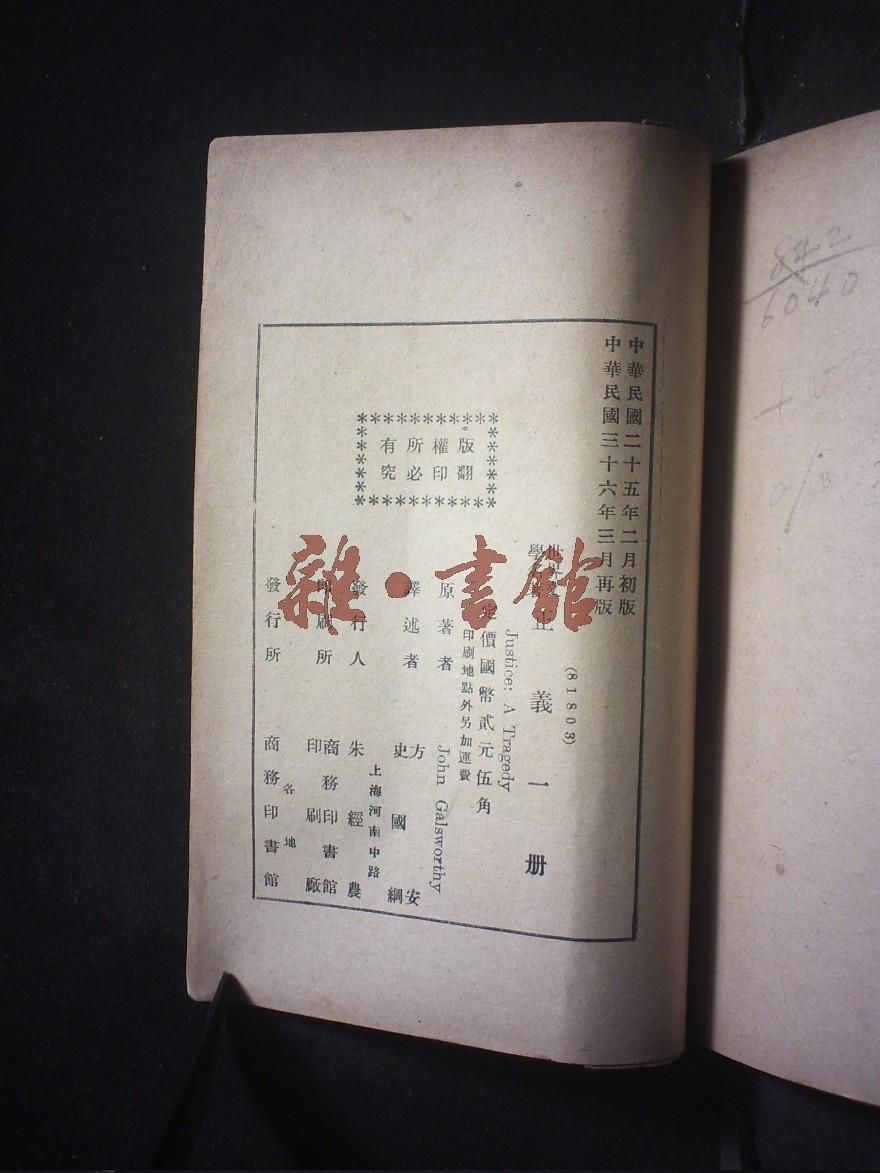 中華民國二十五年二月初版
中華民國三十六年三月再版
(81803)
世界文
學名著
正義一册
Justice: A Tragedy
定價國幣貳元伍角
印刷地點外另加運費
版權所有
翻印必究
原著者 John Galsworthy
譯述者 方安
史國綱
發行人 朱經農
上海河南中路
印刷所 商務印書館
印刷廠
發行所 商務印書館
各地
雜·書館
822
6040